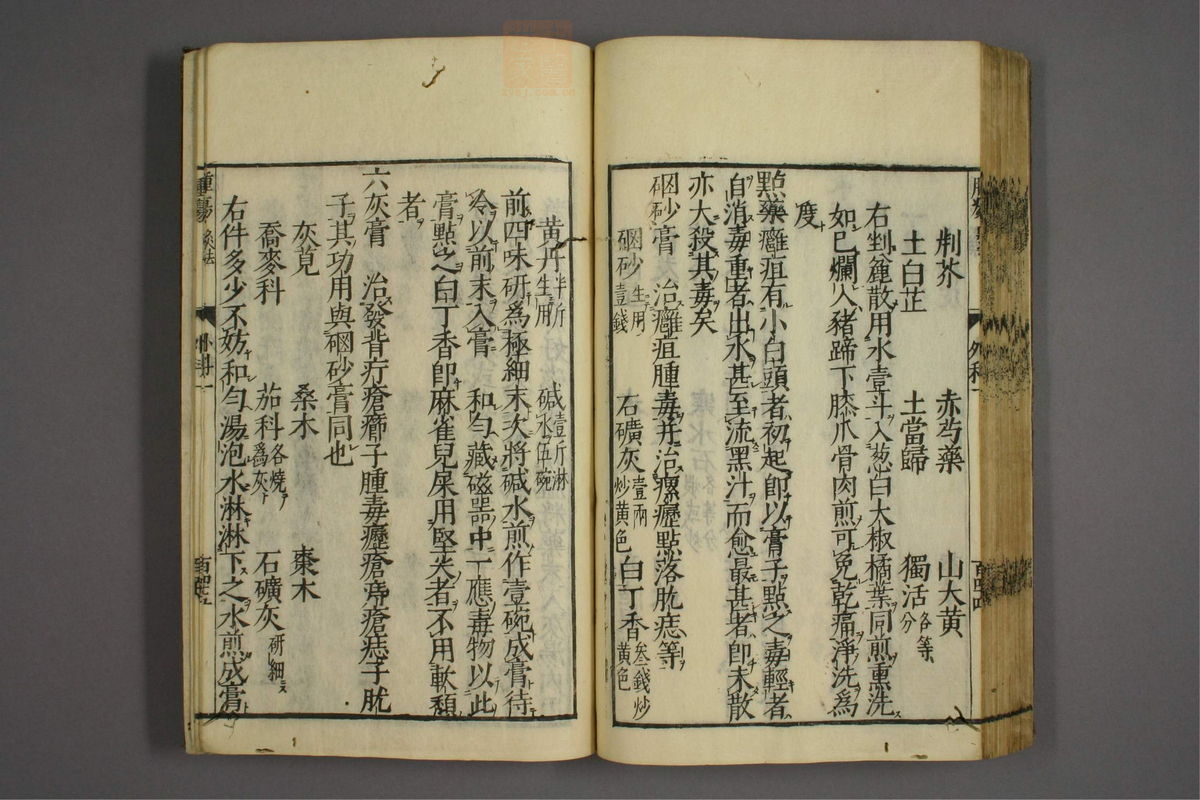 荆芥　赤芍藥　山大黄
土白芷　土當歸　獨活各等分
右剉䉶散用水壹斗入葱白大椒橘葉同煎熏洗
如已爛人豬蹄下膝爪骨肉煎可免乾痛淨洗爲
度
點藥癰疽有小白頭者初起卽以膏子點之毒輕者
自消毒重者出水甚至流黑汁而愈最甚者卽未散
亦大殺其毒矣
硇砂膏　治癰疽腫毒并治瘰癧點落肬痣等
硇砂生用　硼砂壹錢　石礦灰壹兩炒黄色　白丁香叁錢炒黄色
黄丹半斤生用　碱壹斤淋水伍碗
前四味研爲極細末次將碱水煎作壹碗成膏待
冷以前末入膏　和勻藏磁器中一應毒物以此
膏點之白丁香卽麻雀兒屎用堅尖者不用軟頹
者
六灰膏　治發背疔瘡癤子腫毒癧瘡痔瘡痣子肬
子其功用與硇砂膏同也
灰莧　桑木　棗木
喬麥科　茄科各燒爲灰　石礦灰研細
右件多少不妨和勻湯泡水淋淋下之水煎成膏
腫瘍
外科一
百四十五
外科一
百四十四